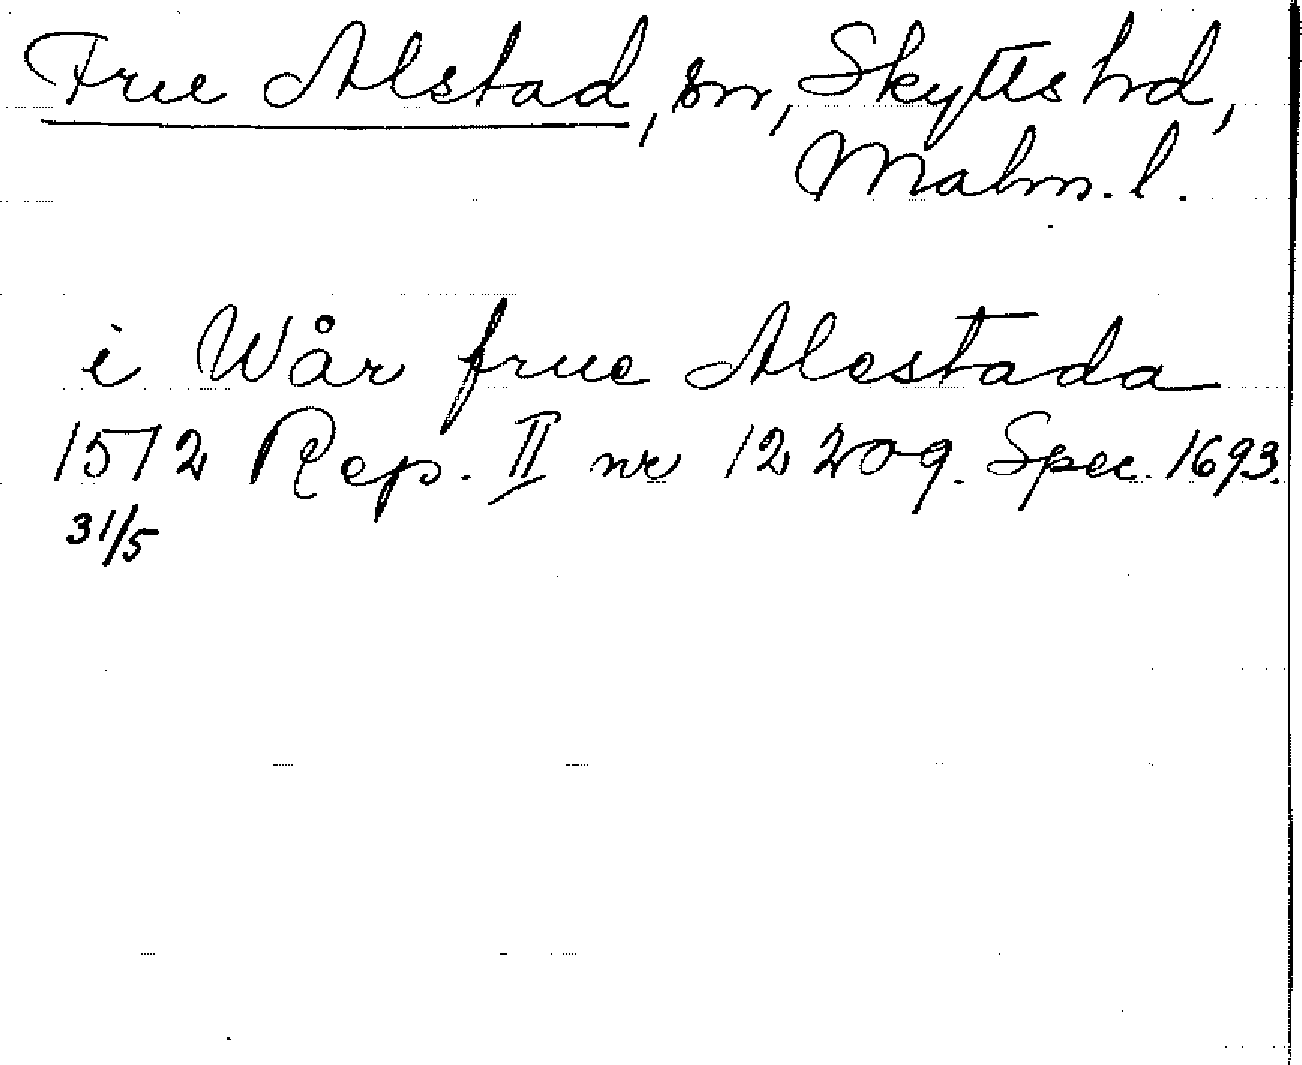 Frue Alstad, sn, Skytts hd,
Malm. l.
i Wår frue Alestada
1512 Rep. II nr 12209. Spec. 1693.
31/5